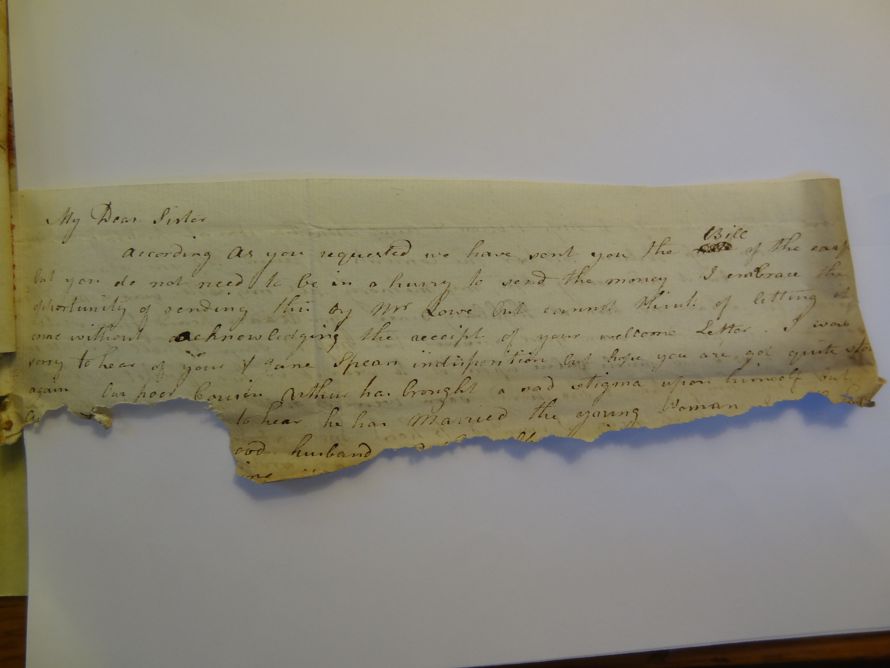 My Dear Sister
according as you requested we have sent you the Bill of the
but you do not need to be in a hurry to send the money I embrace the
opportunity of sending this by Mr Lowe but cannot think of letting it
come without acknowledging the receipt of your welcome Letter. I was
sorry to hear of your & Jane Spean indisposition but hope you are got quite
again Our poor Cousin Arthur has brought a sad stigma upon himself but
to hear he has Married the young Woman
ood husband